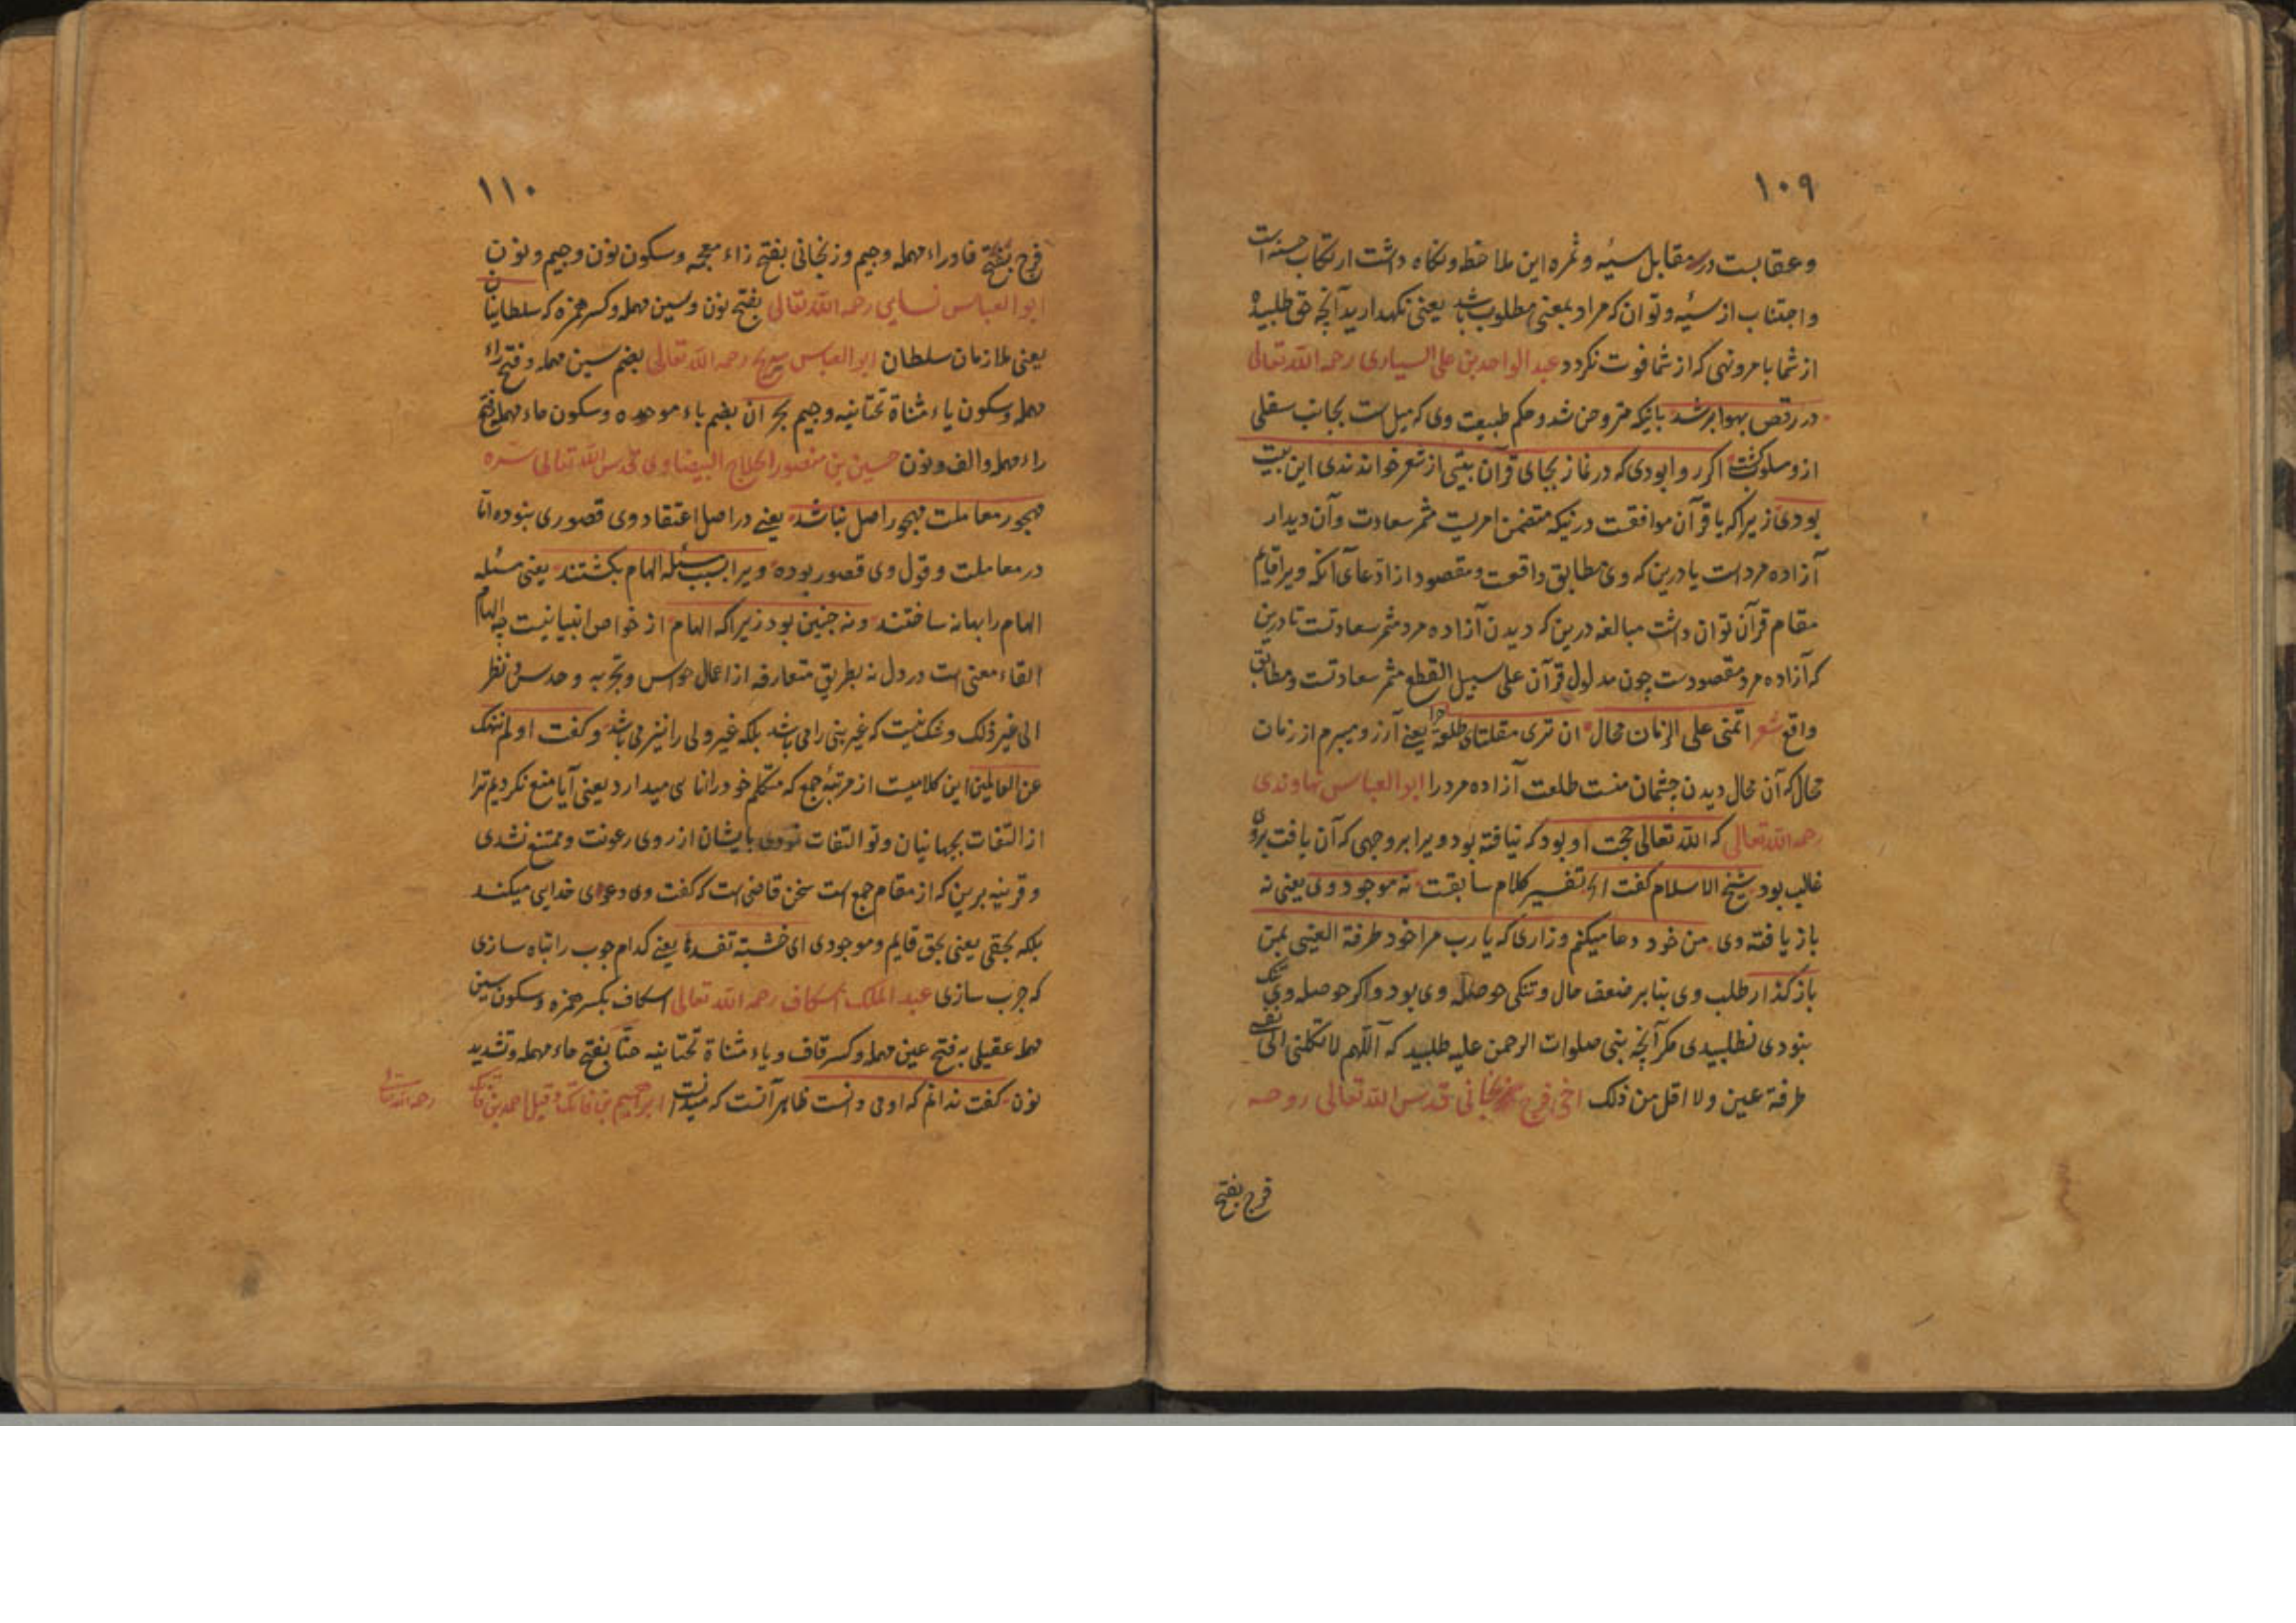 ۱۰۹
وعقابست در مقابل سیئه وثمره این ملاحظه ونکاه داشت ارتکاب حسنه است
واجتناب از سیئه وتوان که مراد بمعنی مطلوب باشد یعنی نکهدارید آنچه حق طلبیده
از شما بامر ونهی که از شما فوت نکردد عبد الواحد بن علی السیاری رحمه الله تعالی
در رقص بهوا بر شد بانیکه متروحن شد وحکم طبیعت وی که میل است بجانب سفلی
ازو مسلوب کشت اکر روا بودی که در نماز بجای قرآن بیتی از شعر خواندندی این بیت
بودی زیرا که با قرآن موافقست درنیکه متضمن امریست مثمر سعادت وآن دیدار
آزاده مرد است یا درین که وی مطابق واقعست ومقصود از ادعای آنکه ویرا قایم
مقام قرآن توان داشت مبالغه درین که دیدن آزاده مرد مثمر سعادتست تا درین
که آزاده مرد مقصودست چون مدلول قرآن علی سبیل القطع مثمر سعادتست ومطابق
واقع شعر اتمنی علی الزمان محال ان تری مقلتای طلعة حر یعنی آرزو میبرم از زمان
محال که آن محال دیدن چشمان منست طلعت آزاده مرد را ابو العباس نهاوندی
رحمه الله تعالی که الله تعالی حجت او بود که نیافته بود ویرا بر وجهی که آن یافت برو
غالب بود شیخ الاسلام کفت الخ تفسیر کلام سابقست نه موجود وی یعنی نه
باز یافته وی من خود دعا میکنم وزاری که یا رب مرا خود طرفة العینی بمن
باز کذار طلب وی بنابر ضعف حال وتنکی حوصله وی بود واکر حوصله وی تنک
نبودی نطلبیدی مکر آنچه نبی صلوات الرحمن علیه طلبید که اللهم لا تکلنی الی نفسی
طرفة عین ولا اقل من ذلک اخی فرج زنجانی قدس الله تعالی روحه
فرج بفتح
۱۱۰
فرج بفتح فا وراء مهمله وجیم وزنجانی بفتح زاء معجمه وسکون نون وجیم ونون
ابو العباس نسایی رحمه الله تعالی بفتح نون وسین مهمله وکسر همزه که سلطانیان
یعنی ملازمان سلطان ابو العباس سریج رحمه الله تعالی بضم سین مهمله وفتح راء
مهمله وسکون یاء مثناة تحتانیه وجیم بحران بضم باء موحده وسکون حاء مهمله وفتح
راء مهمله والف ونون حسین بن منصور الحلاج البیضاوی قدس الله تعالی سره
مهجور معاملت مهجور اصل نباشد یعنی در اصل اعتقاد وی قصوری نبوده اما
در معاملت وقول وی قصور بوده ویرا بسبب مسئله الهام بکشتند یعنی مسئله
الهام را بهانه ساختند ونه چنین بود زیرا که الهام از خواص انبیا نیست چه الهام
القاء معنی است در دل نه بطریق متعارفه از اعمال حواس وتجربه وحدس ونظر
الی غیر ذلک وشک نیست که غیر نبی را می باشد بلکه غیر ولی را نیز می باشد وکفت اولم ننهک
عن العالمین این کلامیست از مرتبهٔ جمع که متکلم خود را ناسی میدارد یعنی آیا منع نکردیم ترا
از التفات بجهانیان وتو التفات نمودی بایشان از روی رعونت وممتنع نشدی
وقرینه برین که از مقام جمع است سخن قاضی است که کفت وی دعوی خدایی میکند
بلکه بحقی یعنی بحق قایم وموجودی ای خشبة تفسدها یعنی کدام چوب را تباه سازی
که چرب سازی عبد الملک اسکاف رحمه الله تعالی اسکاف بکسر همزه وسکون سین
مهمله عقیلی بفتح عین مهمله وکسر قاف ویاء مثناة تحتانیه حنا بفتح حاء مهمله وتشدید
نون کفت ندانم که او می دانست ظاهر آنست که میدانست ابراهیم بن فاتک وقیل احمد بن فاتک رحمه الله تعالی